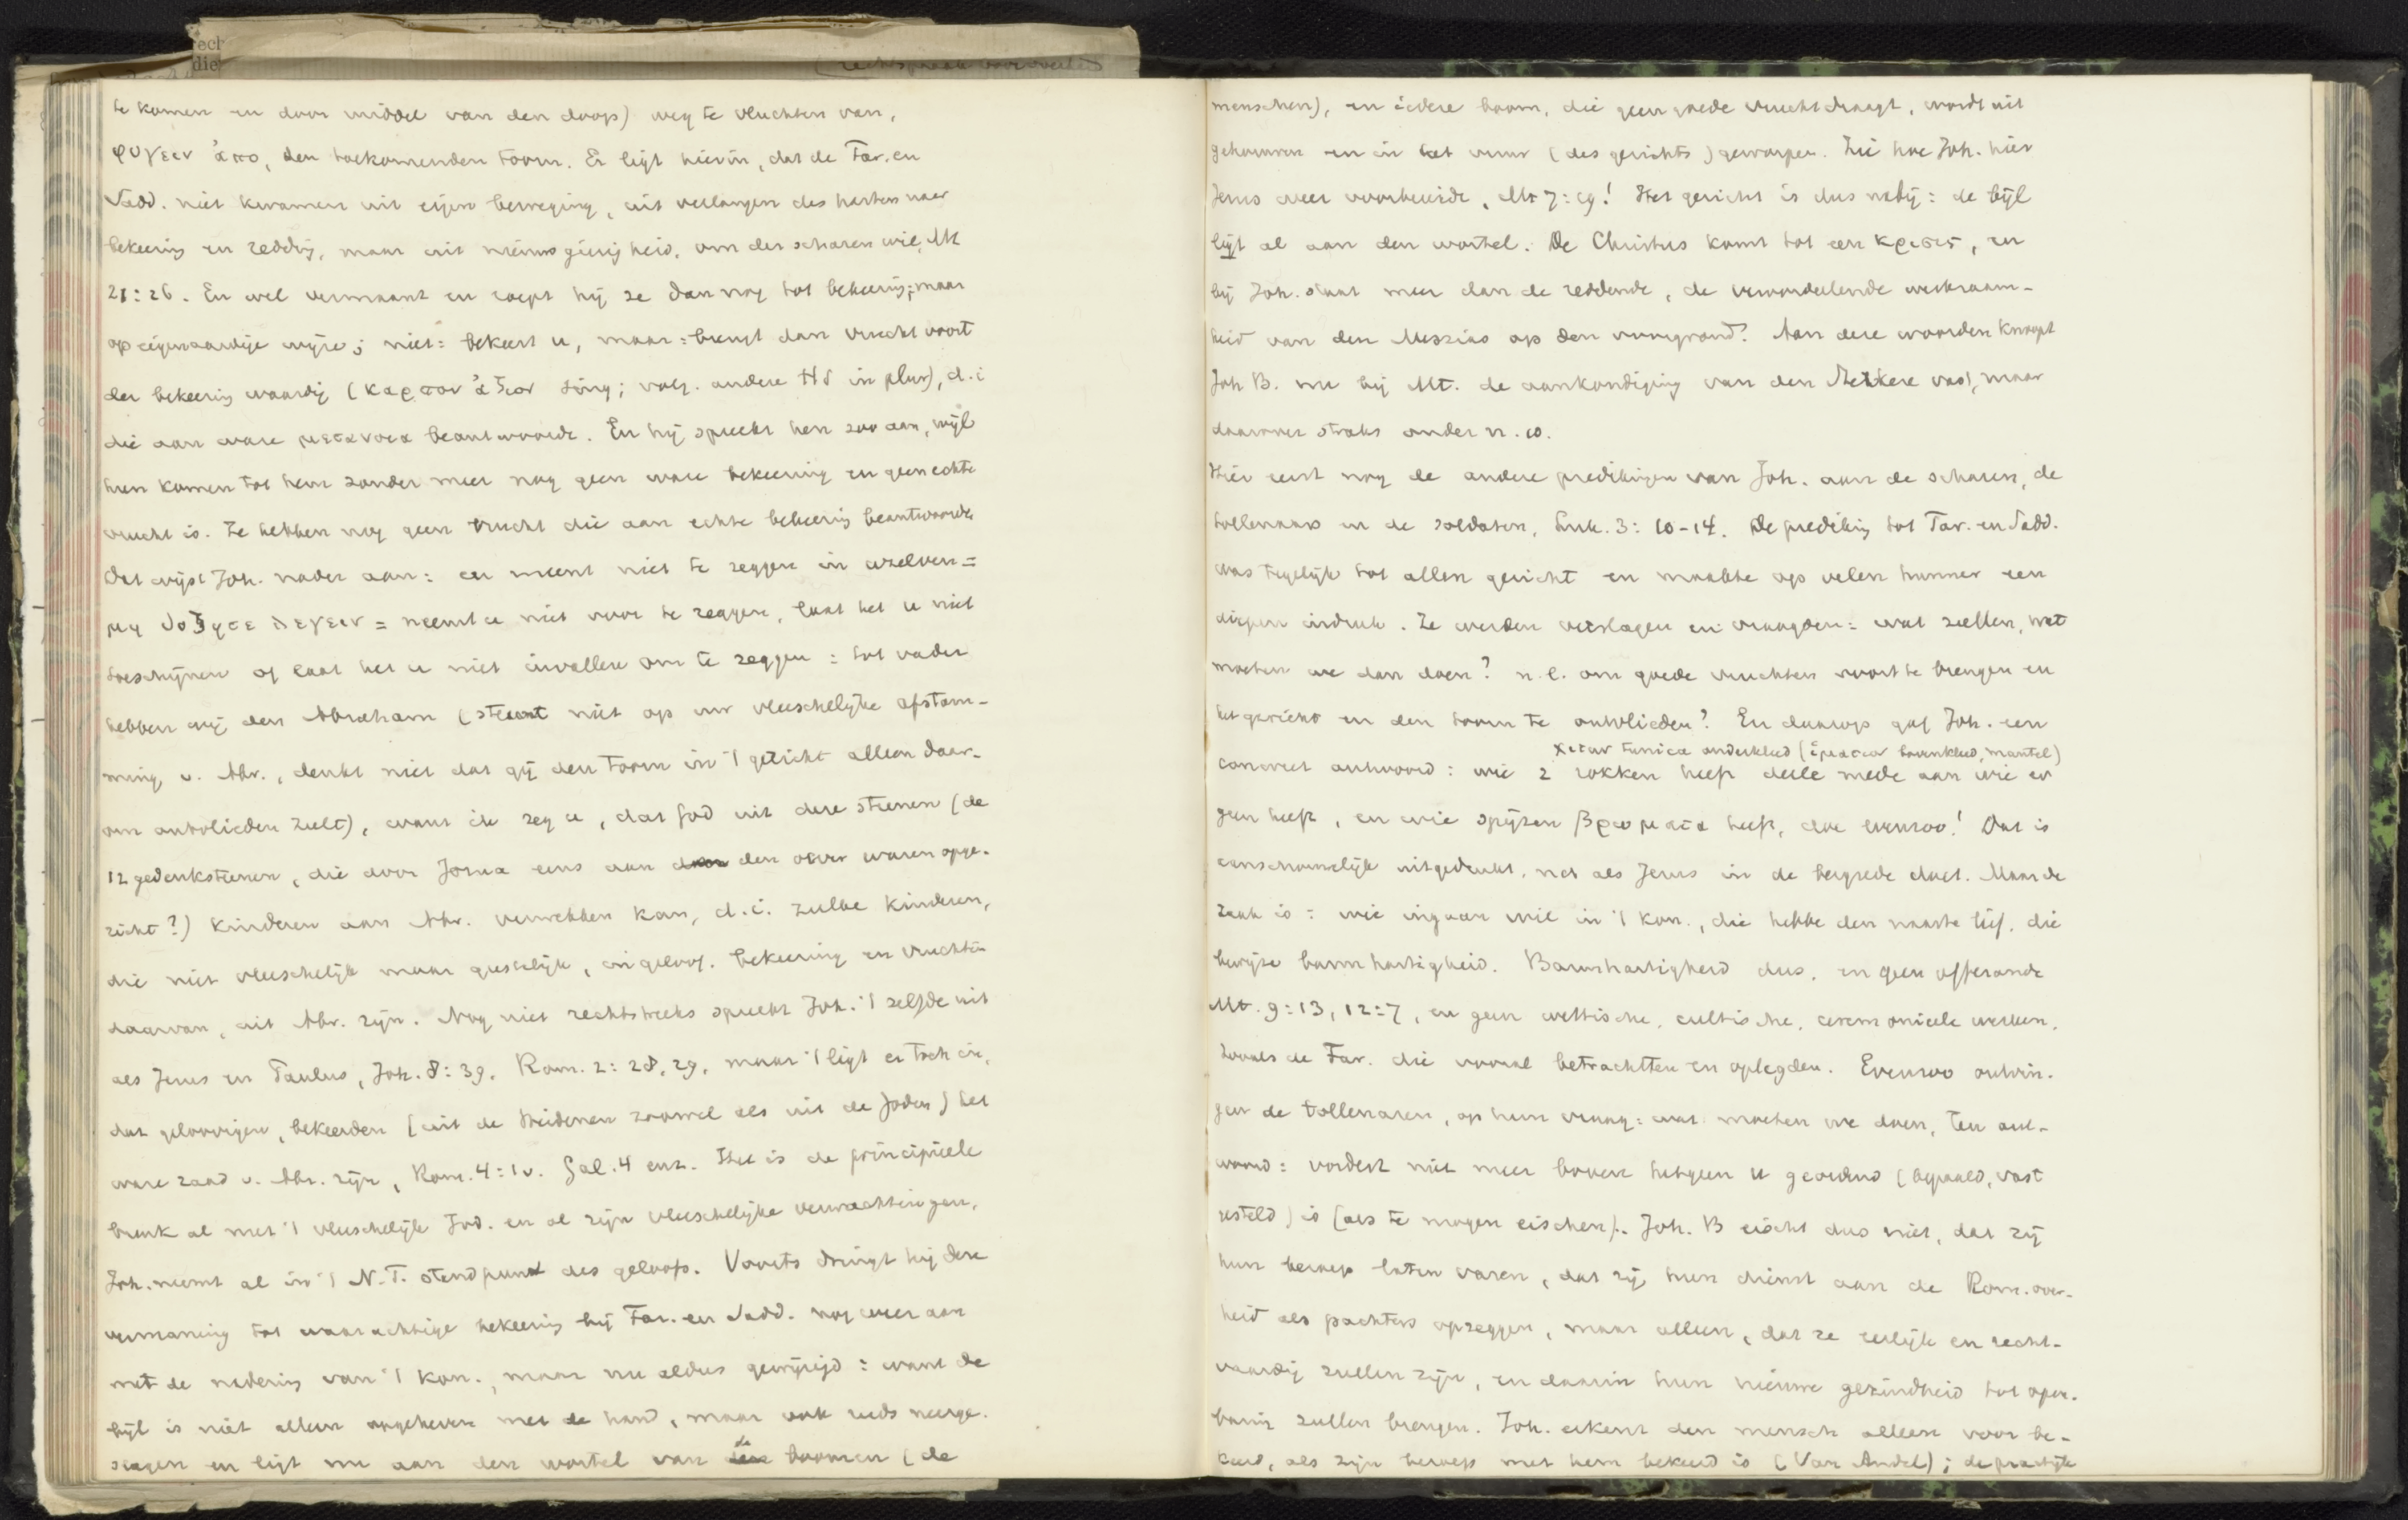 te komen en door middel van den doop) weg te vluchten van,
φυγειν ἀπο, den toekomenden toorn. Er ligt hierin, dat de Far. en
Sadd. niet kwamen uit eigen beweging, uit verlangen des harten naar
bekeering en redding, maar uit nieuwsgierigheid, om der scharen wil, Mt
21:26. En wel vermaant en roept hij ze dan nog tot bekeering; maar
op eigenaardige wijze; niet: bekeert u, maar: brengt dan vrucht voort
der bekeering waardig (καρπον ἀξιον sing; volg. andere HS in plur), d.i
die aan ware μετανοια beantwoorde. En hij spreekt hen zoo aan, wijl
hun komen tot hem zonder meer nog geen ware bekeering en geen echte
vrucht is. Ze hebben nog geen vrucht die aan echte bekeering beantwoorde
Dat wijst Joh. nader aan: en meent niet te zeggen in uzelven =
μη δοξητε λεγειν = neemt u niet voor te zeggen, laat het u niet
toeschijnen of laat het u niet invallen om te zeggen: tot vader
hebben wij den Abraham (steunt niet op uw vleeschelijke afstam-
ming v. Abr., denkt niet dat gij den toorn in 't gericht alleen daar-
om ontvlieden zult), want ik zeg u, dat God uit deze steenen (de
12 gedenksteenen, die door Jozua eens aan den oever waren opge-
richt?) kinderen aan Abr. verwekken kan, d.i. zulke kinderen,
die niet vleeschelijk maar geestelijk, in geloof, bekeering en vruchten
daarvan, uit Abr. zijn. Nog niet rechtstreeks spreekt Joh. 't zelfde uit
als Jezus en Paulus, Joh. 8:39, Rom. 2:28,29, maar 't ligt er toch in,
dat geloovigen, bekeerden (uit de Heidenen zoowel als uit de Joden) het
ware zaad v. Abr. zijn, Rom. 4:1v. Gal. 4 enz. Het is de principieele
breuk al met 't vleeschelijk Jod. en al zijn vleeschelijke verwachtingen,
Joh. neemt al in 't N.T. standpunt des geloofs. Voorts dringt hij deze
vermaning tot waarachtige bekeering bij Far. en Sadd. nog weer aan
met de nadering van 't kon., maar nu aldus gewijzigd: want de
bijl is niet alleen opgeheven met de hand, maar ook reeds neerge-
slagen en ligt nu aan den wortel van de boomen (de
menschen), en iedere boom, die geen goede vrucht draagt, wordt uit
gehouwen en in het vuur (des gerichts) geworpen. Zie hoe Joh. hier
Jezus weer voorbereidde, Mt 7:19! Het gericht is dus nabij: de bijl
ligt al aan den wortel. De Christus komt tot een κρισις, en
bij Joh. staat meer dan de reddende, de veroordeelende werkzaam-
heid van den Messias op den voorgrond. Aan deze woorden knoopt
Joh B. nu bij Mt. de aankondiging van den Sterkere vast, maar
daarover straks onder n. 10.
Hier eerst nog de andere predikingen van Joh. aan de scharen, de
tollenaars en de soldaten, Luk. 3:10-14. De prediking tot Far. en Sadd.
was tegelijk tot allen gericht en maakte op velen hunner een
diepen indruk. Ze werden verslagen en vraagden: wat zullen, wat
moeten we dan doen? n.l. om goede vruchten voort te brengen en
het gericht en den toorn te ontvlieden? En daarop gaf Joh. een
χιτων tunica onderkleed (ἱματιον bovenkleed, mantel)
concreet antwoord: wie 2 rokken heeft deele mede aan wie er
geen heeft, en wie spijzen βρωματα heeft, doe evenzoo! Dat is
aanschouwelijk uitgedrukt, net als Jezus in de bergrede doet. Maar de
zaak is: wie ingaan wil in 't kon., die hebbe den naaste lief, die
bewijze barmhartigheid. Barmhartigheid dus, en geen offerande
Mt. 9:13, 12:7, en geen wettische, cultische, ceremonieele werken,
zooals de Far. die vooral betrachtten en oplegden. Evenzoo ontvin-
gen de tollenaren, op hun vraag: wat moeten we doen, ten ant-
woord: vordert niet meer boven hetgeen u geordend (bepaald, vast
gesteld) is (als te mogen eischen). Joh. B eischt dus niet, dat zij
hun beroep laten varen, dat zij hun dienst aan de Rom. over-
heid als pachters opzeggen, maar alleen, dat ze eerlijk en recht-
vaardig zullen zijn, en daarin hun nieuwe gezindheid tot open-
baring zullen brengen. Joh. erkent den mensch alleen voor be-
keerd, als zijn beroep met hem bekeerd is (Van Andel); de practijk